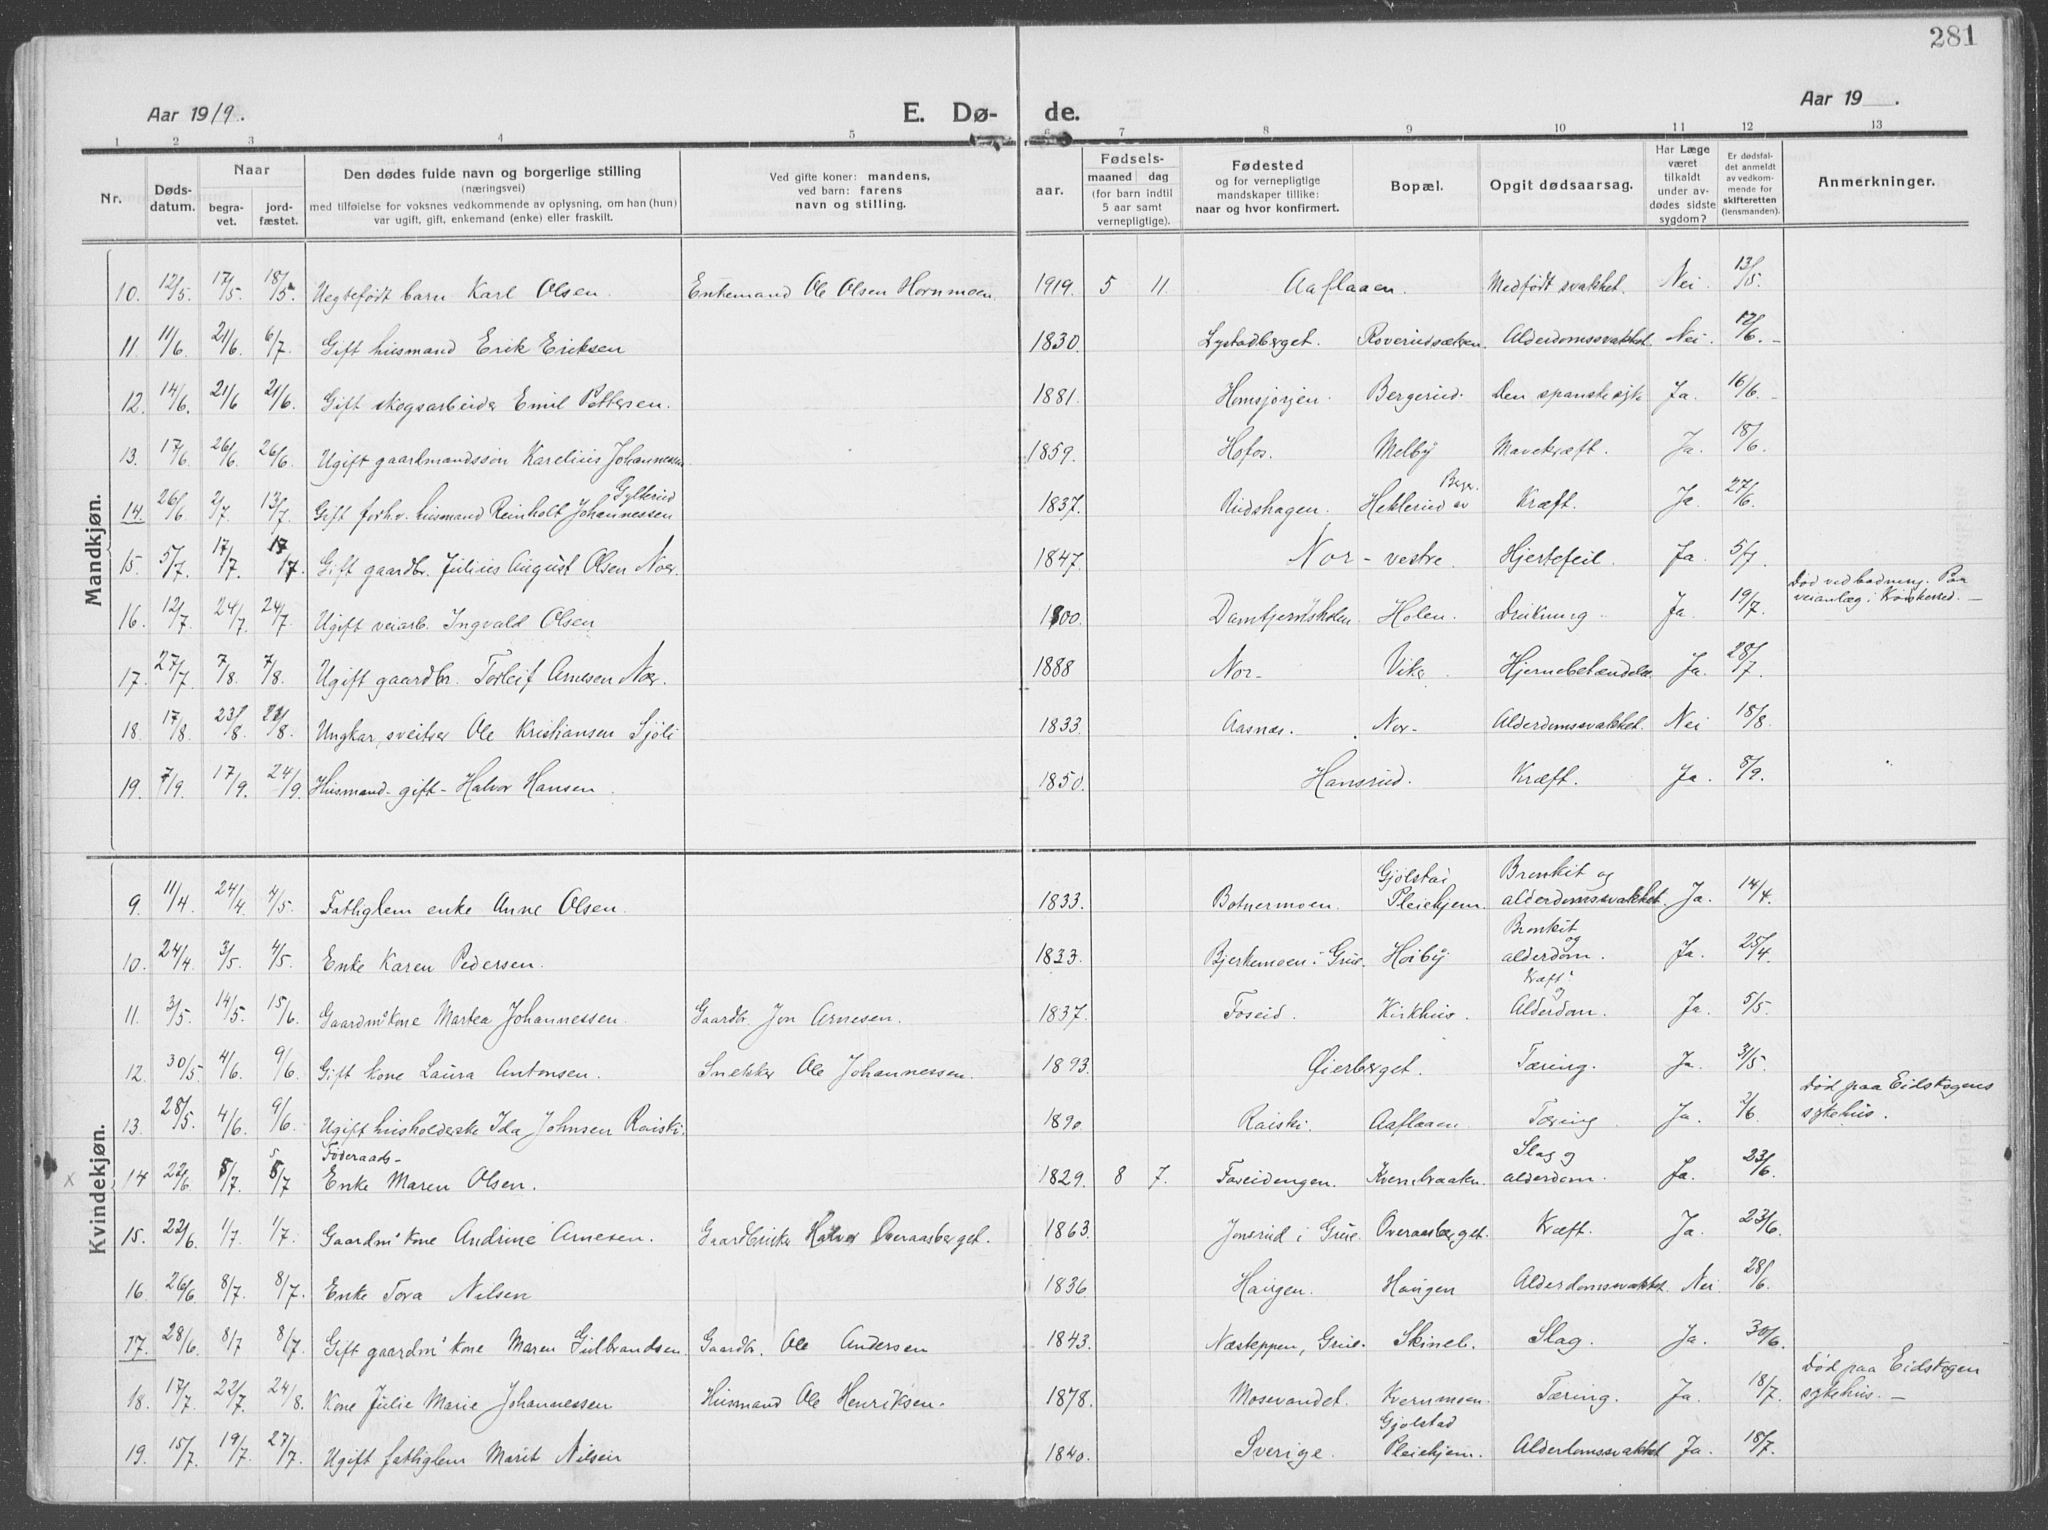 281
Aar 1919. E. Dø- de. Aar 19 .
1 2 3 4 5 6 7 8 9 10 11 12 13
Nr. Døds-datum. Naar begra-vet. jord-fæstet. Den dødes fulde navn og borgerlige stilling (næringsvei) med tilføielse for voksnes vedkommende av oplysning, om han (hun) var ugift, gift, enkemand (enke) eller fraskilt. Ved gifte koner: mandens, ved barn: farens navn og stilling. aar. Fødsels- maaned dag (for barn indtil 5 aar samt vernepligtige). Fødested og for vernepligtige mandskaper tillike: naar og hvor konfirmert. Bopæl. Opgit dødsaarsag. Har Læge været tilkaldt under av-dødes sidste sygdom? Er dødsfal-det anmeldt av vedkom-mende for skifteretten (lensmanden). Anmerkninger.
Mandkjøn.
10. 12/5. 17/5. 18/5. Uegtefødt barn Karl Olsen. Enkemand Ole Olsen Hornmoen. 1919. 5 11 Aaflaaen. Medfødt svakhet. Nei. 13/5.
11. 11/6. 21/6. 6/7. Gift husmand Erik Eriksen 1830. Lystadberget. Roverudsætren. Alderdomssvakhet. Nei. 12/6.
12. 14/6. 21/6 21/6. Gift skogsarbeider Emil Pettersen. 1881. Bergerud. Den spanske syke Ja. 16/6.
13. 17/6. 26/6. 26/6. Ugift gaardmandssøn Karelius Johannessen 1859. Hofos. Melby Mavekræft. Ja. 18/6
14. 26/6. 2/7. 13/7. Gift forhv. husmand Reinholt Johannessen Gylterud 1837. Rudshagen. Kræft. Ja. 27/6.
15. 5/7. 17/7. 17/7. Gift gaardbr. Julius August Olsen Nor. 1847. Nor - vestre. Hjertefeil. Ja. 5/7.
16. 12/7. 24/7. 24/7. Ugift veiarb. Ingvald Olsen 1900. Damtjernsholen. Holen. Drukning. Ja. 19/7. Død ved badning. Paa veianlæg i
17. 27/7. 7/8. 7/8. Ugift gaardbr. Torleif Arnesen Nor. 1888 Nor- Viker. Hjernebetændelse Ja. 28/7.
18. 17/8. 23/8. 8. Ungkar, sveitser Ole Kristiansen Sjøli 1833. Aasnæs. Nor- Alderdomssvakhet. Nei 18/8.
19. 7/9. 17/9. 24/9. Husmand - gift - Halvor Hansen. 1850. Hansrud. Kræft. Ja. 8/9.
Kvindekjøn.
9. 11/4. 24/4. 4/5. Fattiglem enke Anne Olsen. 1833. Botnermoen. Gjølstad Pleiehjem. Bronkit og alderdomssvakhet. Ja. 14/4.
10. 24/4 3/5. 4/5. Enke Karen Pedersen. 1833. Bjerkemoen i Grue. Høiby Bronkit og alderdom. Ja. 25/4.
11. 3/5. 14/5. 15/6. Gaardm' kone Martea Johannessen. Gaardbr. Jon Arnesen. 1837. Foseid. Kirkhus. Kræft og Alderdom. Ja. 5/5.
12. 30/5. 4/6. 9/6. Gift kone Laura Antonsen. Snekker Ole Johannessen. 1893. Øierberget. Tæring. Ja. 31/5.
13. 28/5. 4/6. 9/6. Ugift husholderske Ida Johnsen Raiski. 1890. Raiski. Aaflaaen. Tæring Ja. 2/6. Død paa Eidskogens sykehus.
x 14 22/6. 5/7. 5/7 Føderaads- Enke Maren Olsen. 1829. 8 7. Foseidengen. Kvernbraaten. Slag og alderdom. Ja. 23/6.
15. 22/6. 1/7. 1/7. Gaardm' kone Andrine Arnesen. Gaardbruker Halvor Overaasberget. 1863. Jonsrud i Grue. Overaasberget. Kræft. Ja. 23/6.
16. 26/6. 8/7. 8/7. Enke Tora Nilsen 1836 Haugen. Haugen Alderdomssvakhet. Nei 28/6.
17. 28/6. 8/7 8/7. Gift gaardm' kone Maren Gulbrandsen. Gaardbr. Ole Andersen 1843. Næsteppen, Grue. Skineb. Slag. Ja. 30/6.
18. 17/7. 22/7. 24/8. Kone Julie Marie Johannessen Husmand Ole Henriksen. 1878. Mosevandet. Kvernmoen. Tæring. Ja. 18/7. Død paa Eidskogen sykehus. -
19. 15/7. 19/7. 27/7. Ugift fattiglem Marit Nilsen 1840. Sverige. Gjølstad Pleiehjem. Alderdomssvakhet Ja. 18/7.